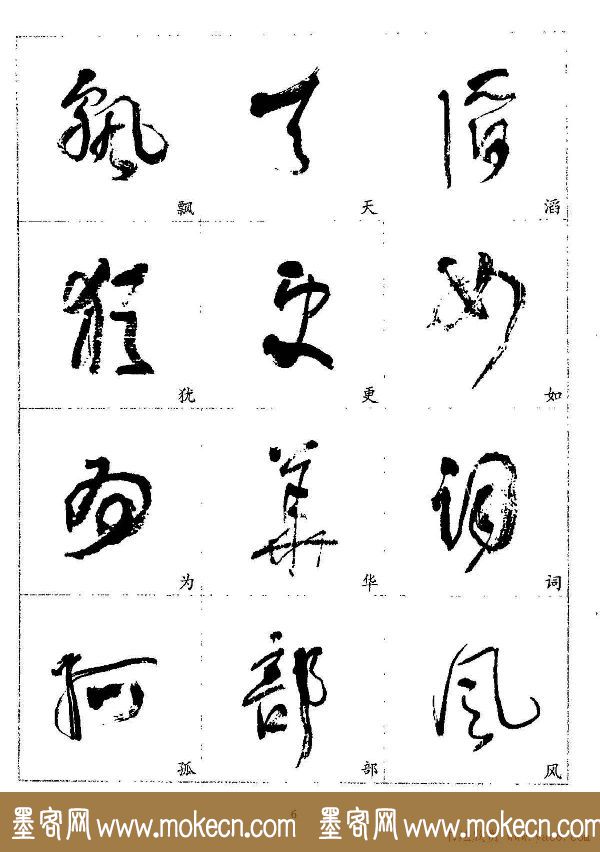 飘 天 滔
犹 更 如
为 华 词
孤 部 风
6
墨客网 www.mokecn.com 墨客网 www.mokecn.com